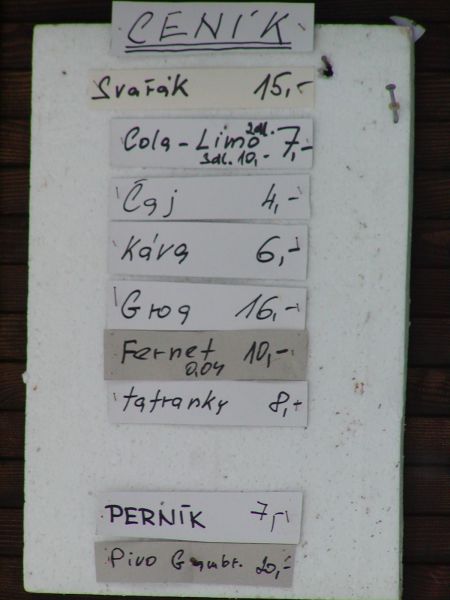 CENÍK
Svařák 15,-
Cola - Limo 2dl. 7,-
3dl. 10,-
Čaj 4,-
Káva 6,-
Grog 16,-
Fernet 10,-
0,04
tatranky 8,-
PERNÍK 7,-
Pivo Gambr. 20,-